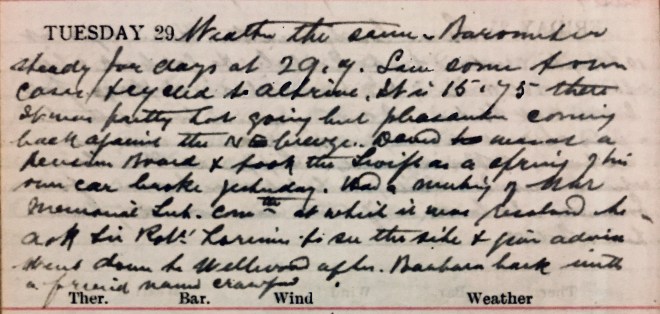 TUESDAY 29 Weather the same. Barometer
steady for days at 29.9. Saw some town
cases & cycled to It is 15.75 there
It was pretty hot going but pleasanter coming
back against the NE breeze. David was at a
Pension Board & took the Swift as a spring of his
own car broke yesterday. Had a meeting of War
Memorial Sub. Comtte at which it was resolved to
ask Sir Robt Lorimer to see the site & give advice
Went down to Wellwood after. Barbara back with
a friend named Crawford
Ther. Bar. Wind Weather